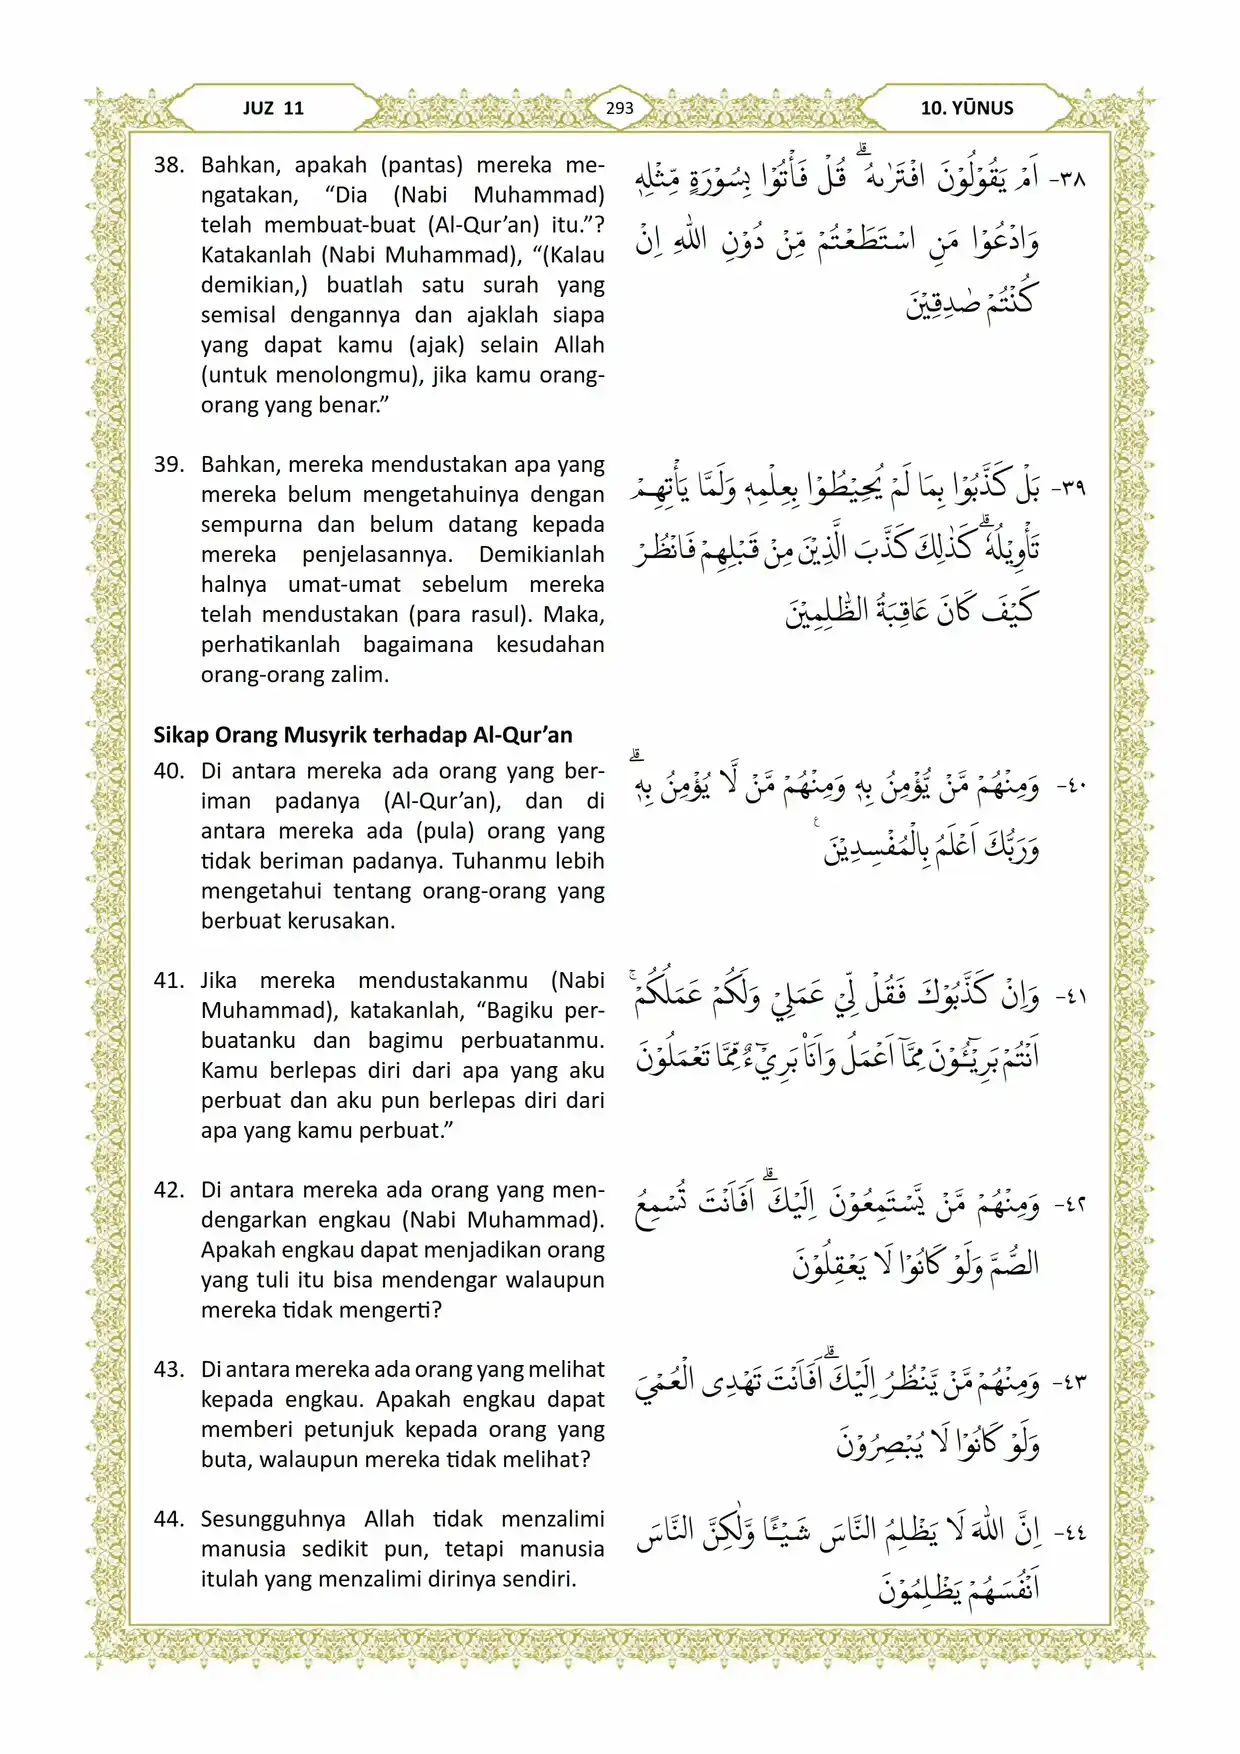 JUZ 11
293
10. YŪNUS
38. Bahkan, apakah (pantas) mereka me-
ngatakan, “Dia (Nabi Muhammad)
telah membuat-buat (Al-Qur’an) itu.”?
Katakanlah (Nabi Muhammad), “(Kalau
demikian,) buatlah satu surah yang
semisal dengannya dan ajaklah siapa
yang dapat kamu (ajak) selain Allah
(untuk menolongmu), jika kamu orang-
orang yang benar.”
٣٨- اَمْ يَقُوْلُوْنَ افْتَرٰىهُ ۗ قُلْ فَأْتُوْا بِسُوْرَةٍ مِّثْلِهٖ
وَادْعُوْا مَنِ اسْتَطَعْتُمْ مِّنْ دُوْنِ اللّٰهِ اِنْ
كُنْتُمْ صٰدِقِيْنَ
39. Bahkan, mereka mendustakan apa yang
mereka belum mengetahuinya dengan
sempurna dan belum datang kepada
mereka penjelasannya. Demikianlah
halnya umat-umat sebelum mereka
telah mendustakan (para rasul). Maka,
perhatikanlah bagaimana kesudahan
orang-orang zalim.
٣٩- بَلْ كَذَّبُوْا بِمَا لَمْ يُحِيْطُوْا بِعِلْمِهٖ وَلَمَّا يَأْتِهِمْ
تَأْوِيْلُهٗ ۗ كَذٰلِكَ كَذَّبَ الَّذِيْنَ مِنْ قَبْلِهِمْ فَانْظُرْ
كَيْفَ كَانَ عَاقِبَةُ الظّٰلِمِيْنَ
Sikap Orang Musyrik terhadap Al-Qur’an
40. Di antara mereka ada orang yang ber-
iman padanya (Al-Qur’an), dan di
antara mereka ada (pula) orang yang
tidak beriman padanya. Tuhanmu lebih
mengetahui tentang orang-orang yang
berbuat kerusakan.
٤٠- وَمِنْهُمْ مَّنْ يُّؤْمِنُ بِهٖ وَمِنْهُمْ مَّنْ لَّا يُؤْمِنُ بِهٖ ۗ
وَرَبُّكَ اَعْلَمُ بِالْمُفْسِدِيْنَ ࣖ
41. Jika mereka mendustakanmu (Nabi
Muhammad), katakanlah, “Bagiku per-
buatanku dan bagimu perbuatanmu.
Kamu berlepas diri dari apa yang aku
perbuat dan aku pun berlepas diri dari
apa yang kamu perbuat.”
٤١- وَاِنْ كَذَّبُوْكَ فَقُلْ لِّيْ عَمَلِيْ وَلَكُمْ عَمَلُكُمْ ۚ
اَنْتُمْ بَرِيْۤـُٔوْنَ مِمَّآ اَعْمَلُ وَاَنَا۠ بَرِيْۤءٌ مِّمَّا تَعْمَلُوْنَ
42. Di antara mereka ada orang yang men-
dengarkan engkau (Nabi Muhammad).
Apakah engkau dapat menjadikan orang
yang tuli itu bisa mendengar walaupun
mereka tidak mengerti?
٤٢- وَمِنْهُمْ مَّنْ يَّسْتَمِعُوْنَ اِلَيْكَ ۗ اَفَاَنْتَ تُسْمِعُ
الصُّمَّ وَلَوْ كَانُوْا لَا يَعْقِلُوْنَ
43. Di antara mereka ada orang yang melihat
kepada engkau. Apakah engkau dapat
memberi petunjuk kepada orang yang
buta, walaupun mereka tidak melihat?
٤٣- وَمِنْهُمْ مَّنْ يَّنْظُرُ اِلَيْكَ ۗ اَفَاَنْتَ تَهْدِى الْعُمْيَ
وَلَوْ كَانُوْا لَا يُبْصِرُوْنَ
44. Sesungguhnya Allah tidak menzalimi
manusia sedikit pun, tetapi manusia
itulah yang menzalimi dirinya sendiri.
٤٤- اِنَّ اللّٰهَ لَا يَظْلِمُ النَّاسَ شَيْـًٔا وَّلٰكِنَّ النَّاسَ
اَنْفُسَهُمْ يَظْلِمُوْنَ